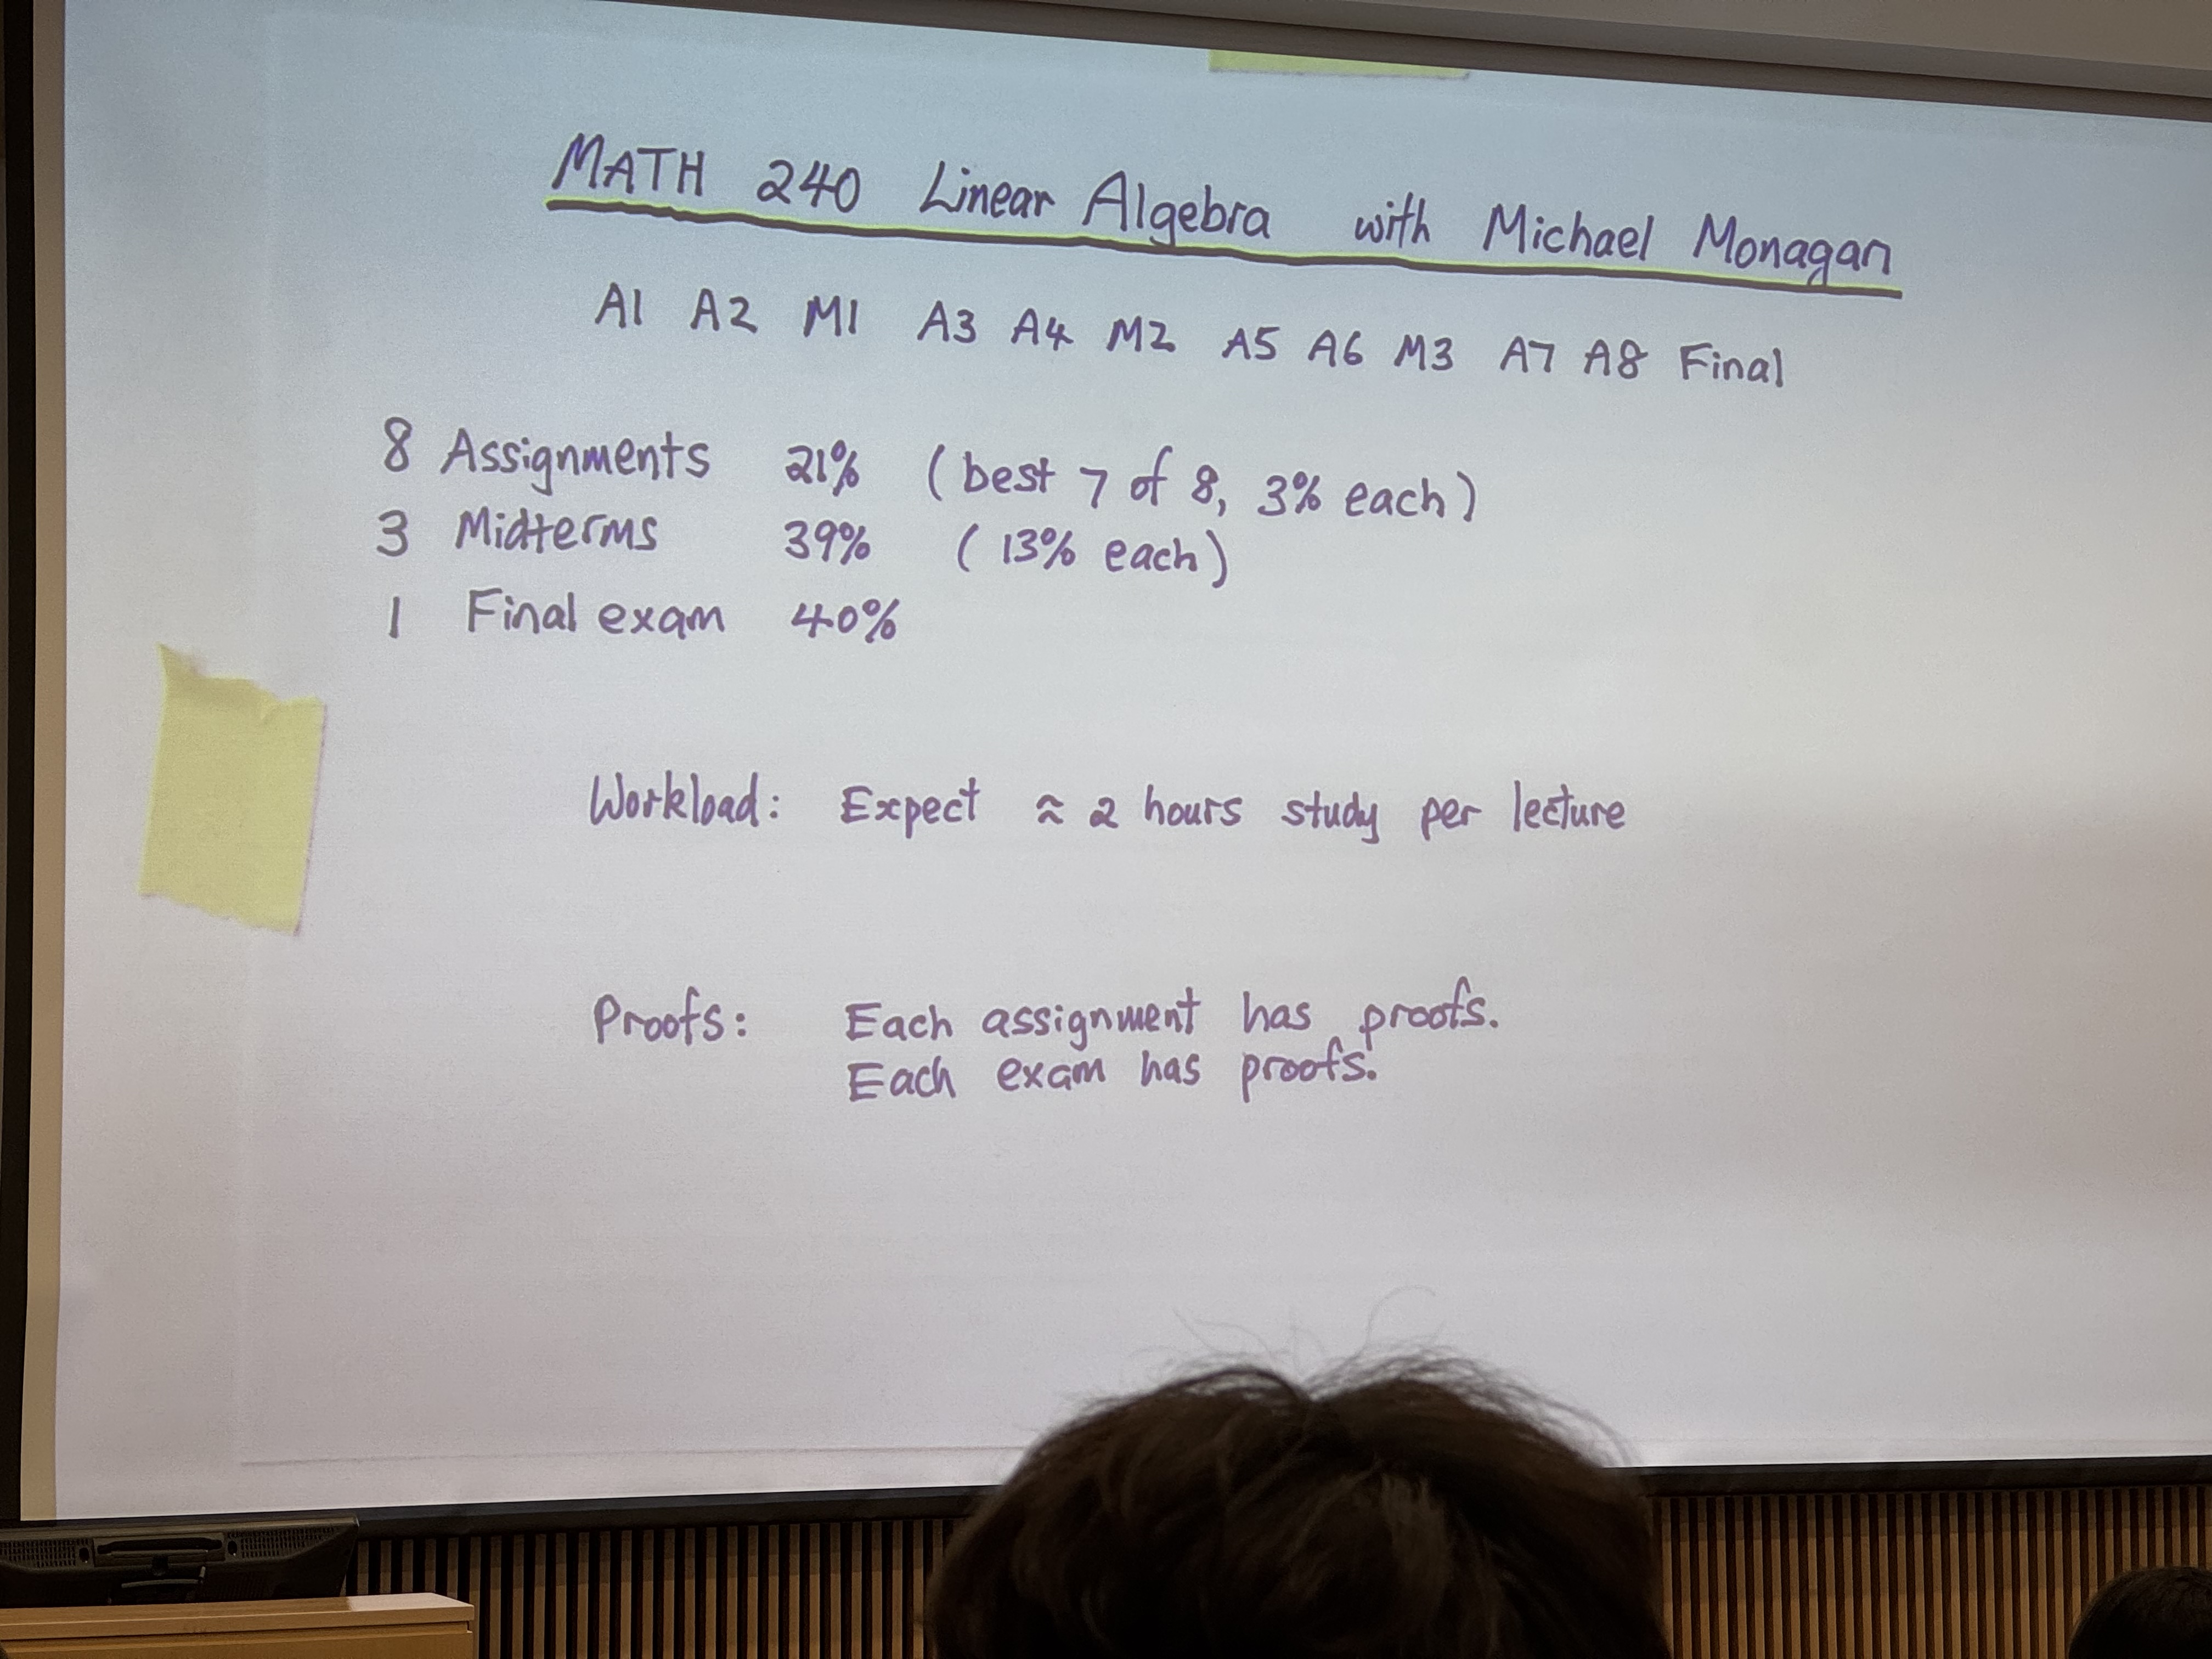 MATH 240 Linear Algebra with Michael Monagan
A1 A2 M1 A3 A4 M2 A5 A6 M3 A7 A8 Final
8 Assignments 21% (best 7 of 8, 3% each)
3 Midterms 39% (13% each)
1 Final exam 40%
Workload: Expect ≈ 2 hours study per lecture
Proofs: Each assignment has proofs.
Each exam has proofs.